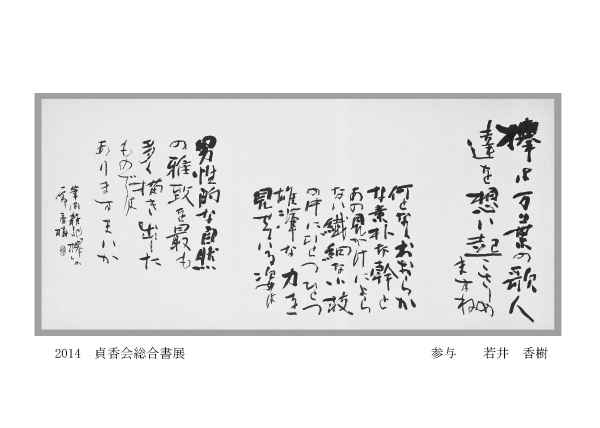 欅は万葉の歌人
達を想い起こさしめ
ますね
何となくおおらか
な素朴な幹と
あの見かけによら
ない繊細な小枝
の先にひとつひとつ
雄渾な力を
見せている姿は
男性的な自然
の雅致を最も
多く描き出した
ものでは
ありますまいか
2014 貞香会総合書展
参与 若井 香樹